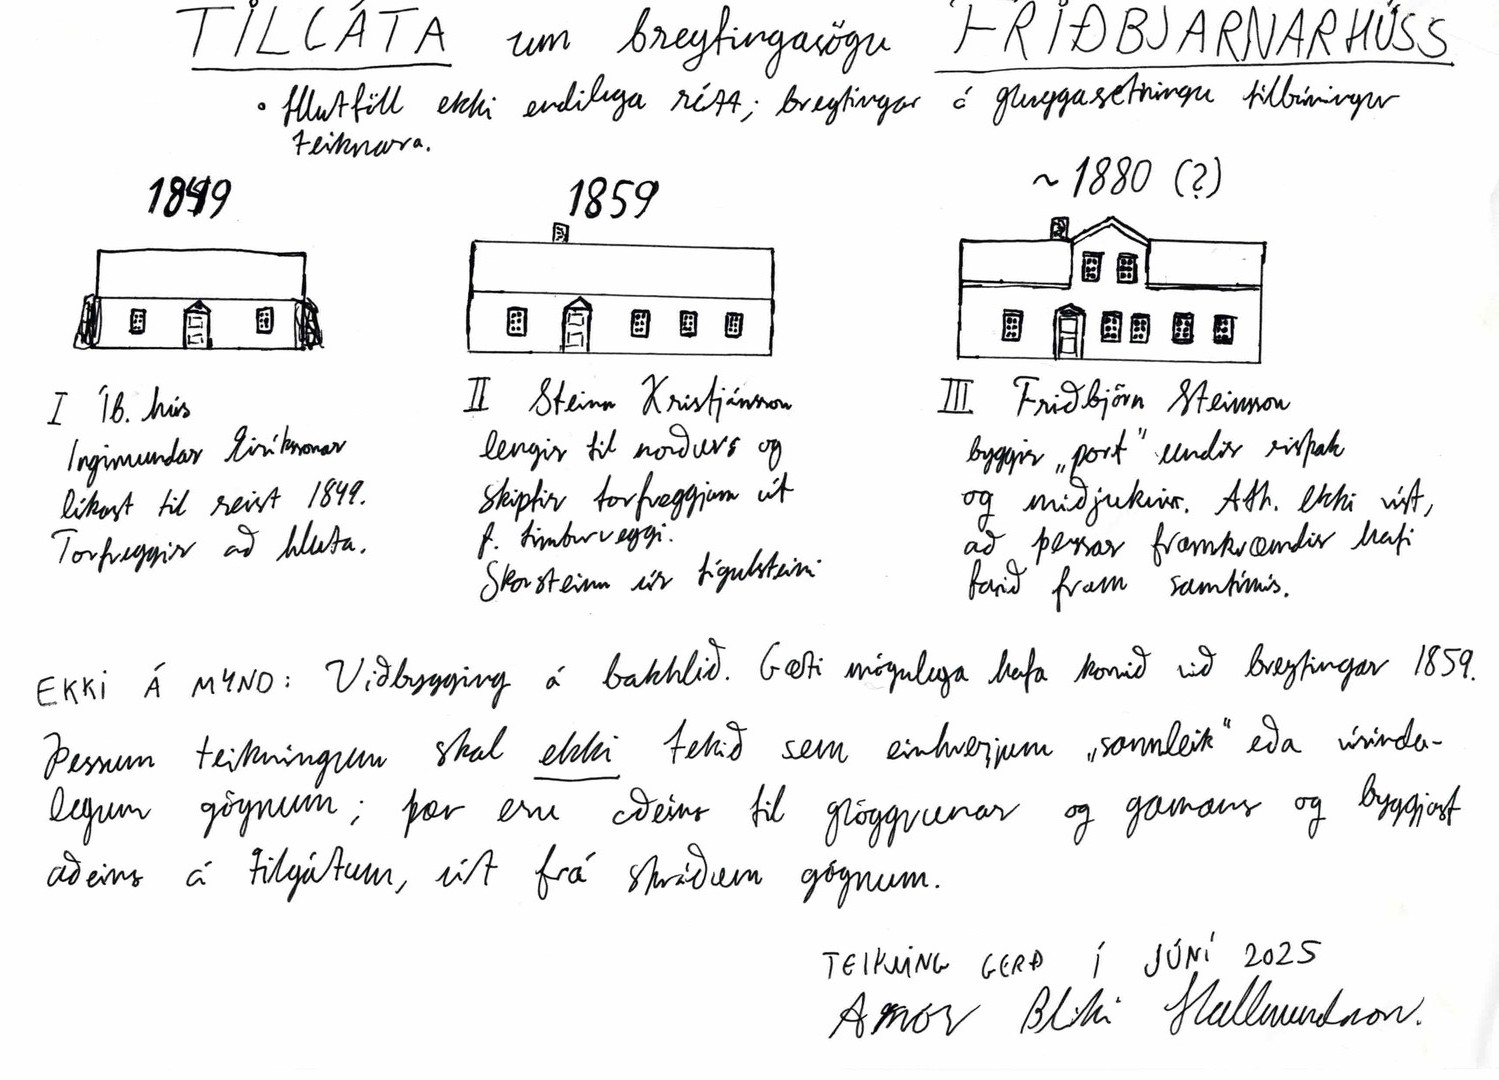 TILGÁTA um breytingasögu FRIÐBJARNARHÚSS
• Hlutföll ekki endilega rétt; breytingar á gluggasetningu tilbúningur
teiknara.
1849
1859
~ 1880 (?)
I Íb. hús
Ingimundar Eiríkssonar
líkast til reist 1849.
Torfveggir að hluta.
II Steinn Kristjánsson
lengir til norðurs og
skiptir torfveggjum út
f. timburveggi.
Skorsteinn úr tígulsteini
III Friðbjörn Steinsson
byggir „port“ undir risþak
og miðjukvist. Ath. ekki víst,
að þessar framkvæmdir hafi
farið fram samtímis.
EKKI Á MYND: Viðbygging á bakhlið. Gæti mögulega hafa komið við breytingar 1859.
Þessum teikningum skal ekki tekið sem einhverjum „sannleik“ eða vísinda-
legum gögnum; þær eru aðeins til glöggvunar og gamans og byggjast
aðeins á tilgátum, út frá skráðum gögnum.
TEIKNING GERÐ Í JÚNÍ 2025
Arnór Bliki Hallmundsson.